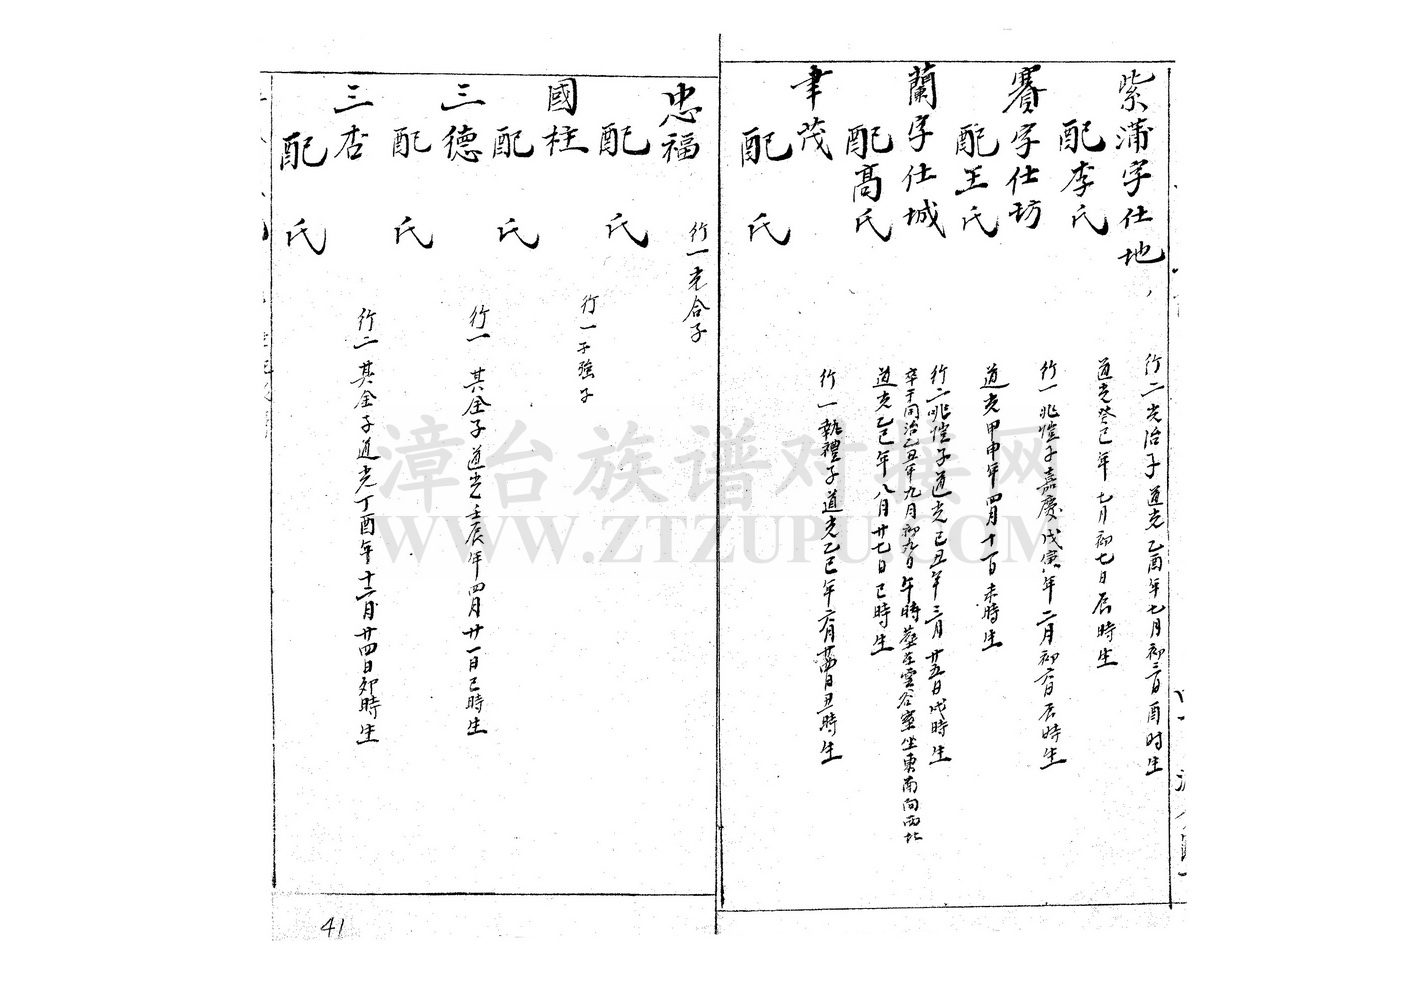 紫蒲字仕地
行二光治子道光乙酉年七月初三日酉时生
配李氏
道光癸巳年七月初七日辰時生
賽字仕坊
行一兆愷子嘉慶戊寅年二月初六日辰時生
配王氏
道光甲申年四月十一日未時生
蘭字仕城
行二兆愷子道光己丑年三月廿五日戌時生
卒于同治乙丑年九月初九日午時葬在雲谷寮坐東南向西北
配高氏
道光乙巳年八月廿七日巳時生
聿茂
行一執禮子道光乙巳年六月廿四日丑時生
配 氏
忠福
行一光合子
配 氏
國柱
行一子強子
配 氏
三德
行一其全子道光壬辰年四月廿一日巳時生
配 氏
三杏
行二其全子道光丁酉年十二月廿四日卯時生
配 氏
41
漳台族谱对接网
WWW.ZTZUPU.COM